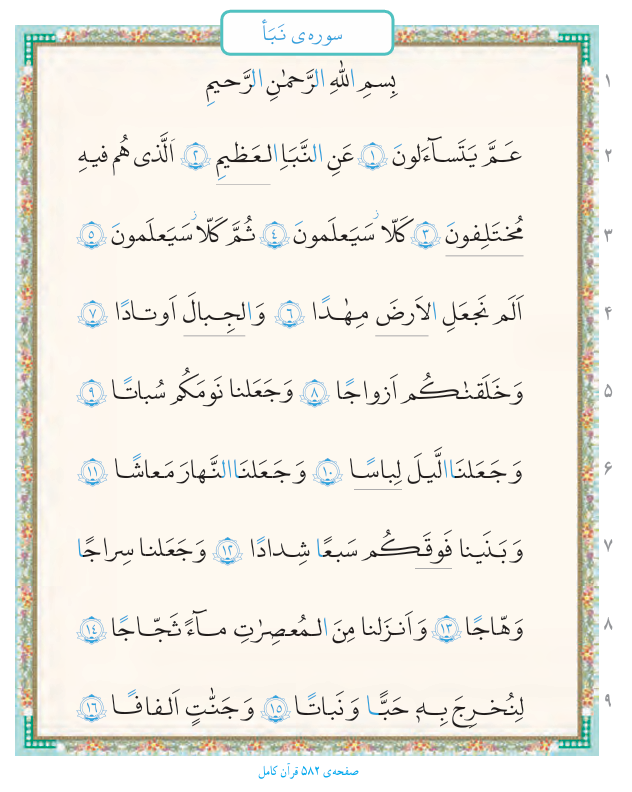 سوره‌ی نَبَأ
۱ بِسمِ اللّٰهِ الرَّحمٰنِ الرَّحیمِ
۲ عَـمَّ یَتَسـآءَلونَ ﴿۱﴾ عَنِ النَّبَاِ العَظیمِ ﴿۲﴾ اَلَّذی هُم فیـهِ
۳ مُختَلِفونَ ﴿۳﴾ کَلّا سَیَعلَمونَ ﴿٤﴾ ثُمَّ کَلّا سَیَعلَمونَ ﴿۵﴾
۴ اَلَم نَجعَلِ الاَرضَ مِهٰـدًا ﴿٦﴾ وَ الجِـبالَ اَوتـادًا ﴿۷﴾
۵ وَ خَلَقنٰـکُم اَزواجًا ﴿۸﴾ وَ جَعَلنا نَومَکُم سُباتًـا ﴿۹﴾
۶ وَ جَـعَلنَا الَّیلَ لِباسًـا ﴿۱۰﴾ وَ جَـعَلنَا النَّهارَ مَعاشًـا ﴿۱۱﴾
۷ وَ بَـنَینا فَوقَـکُم سَبعًـا شِـدادًا ﴿۱۲﴾ وَ جَعَلنـا سِراجًـا
۸ وَهّاجًا ﴿۱۳﴾ وَ اَنـزَلنا مِنَ الـمُعصِرٰتِ مـآءً ثَجّـاجًـا ﴿۱٤﴾
۹ لِنُخـرِجَ بِـهٖ حَبًّـا وَ نَباتًـا ﴿۱۵﴾ وَ جَنّٰتٍ اَلفافًـا ﴿۱٦﴾
صفحه‌ی ۵۸۲ قرآن کامل